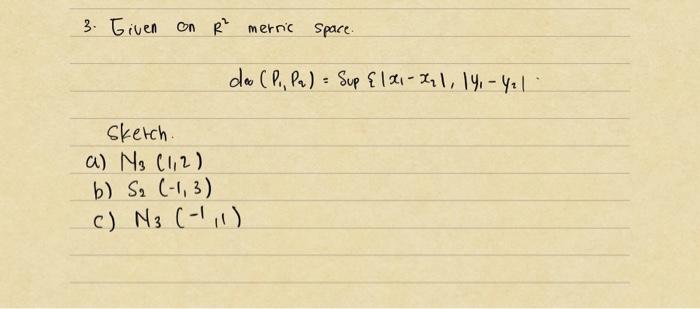 3. Given on R² metric space.
d∞ (P₁, P₂) = Sup {|x₁ - x₂|, |y₁ - y₂|.
Sketch.
a) N₃ (1,2)
b) S₂ (-1, 3)
c) N₃ (-1,1)